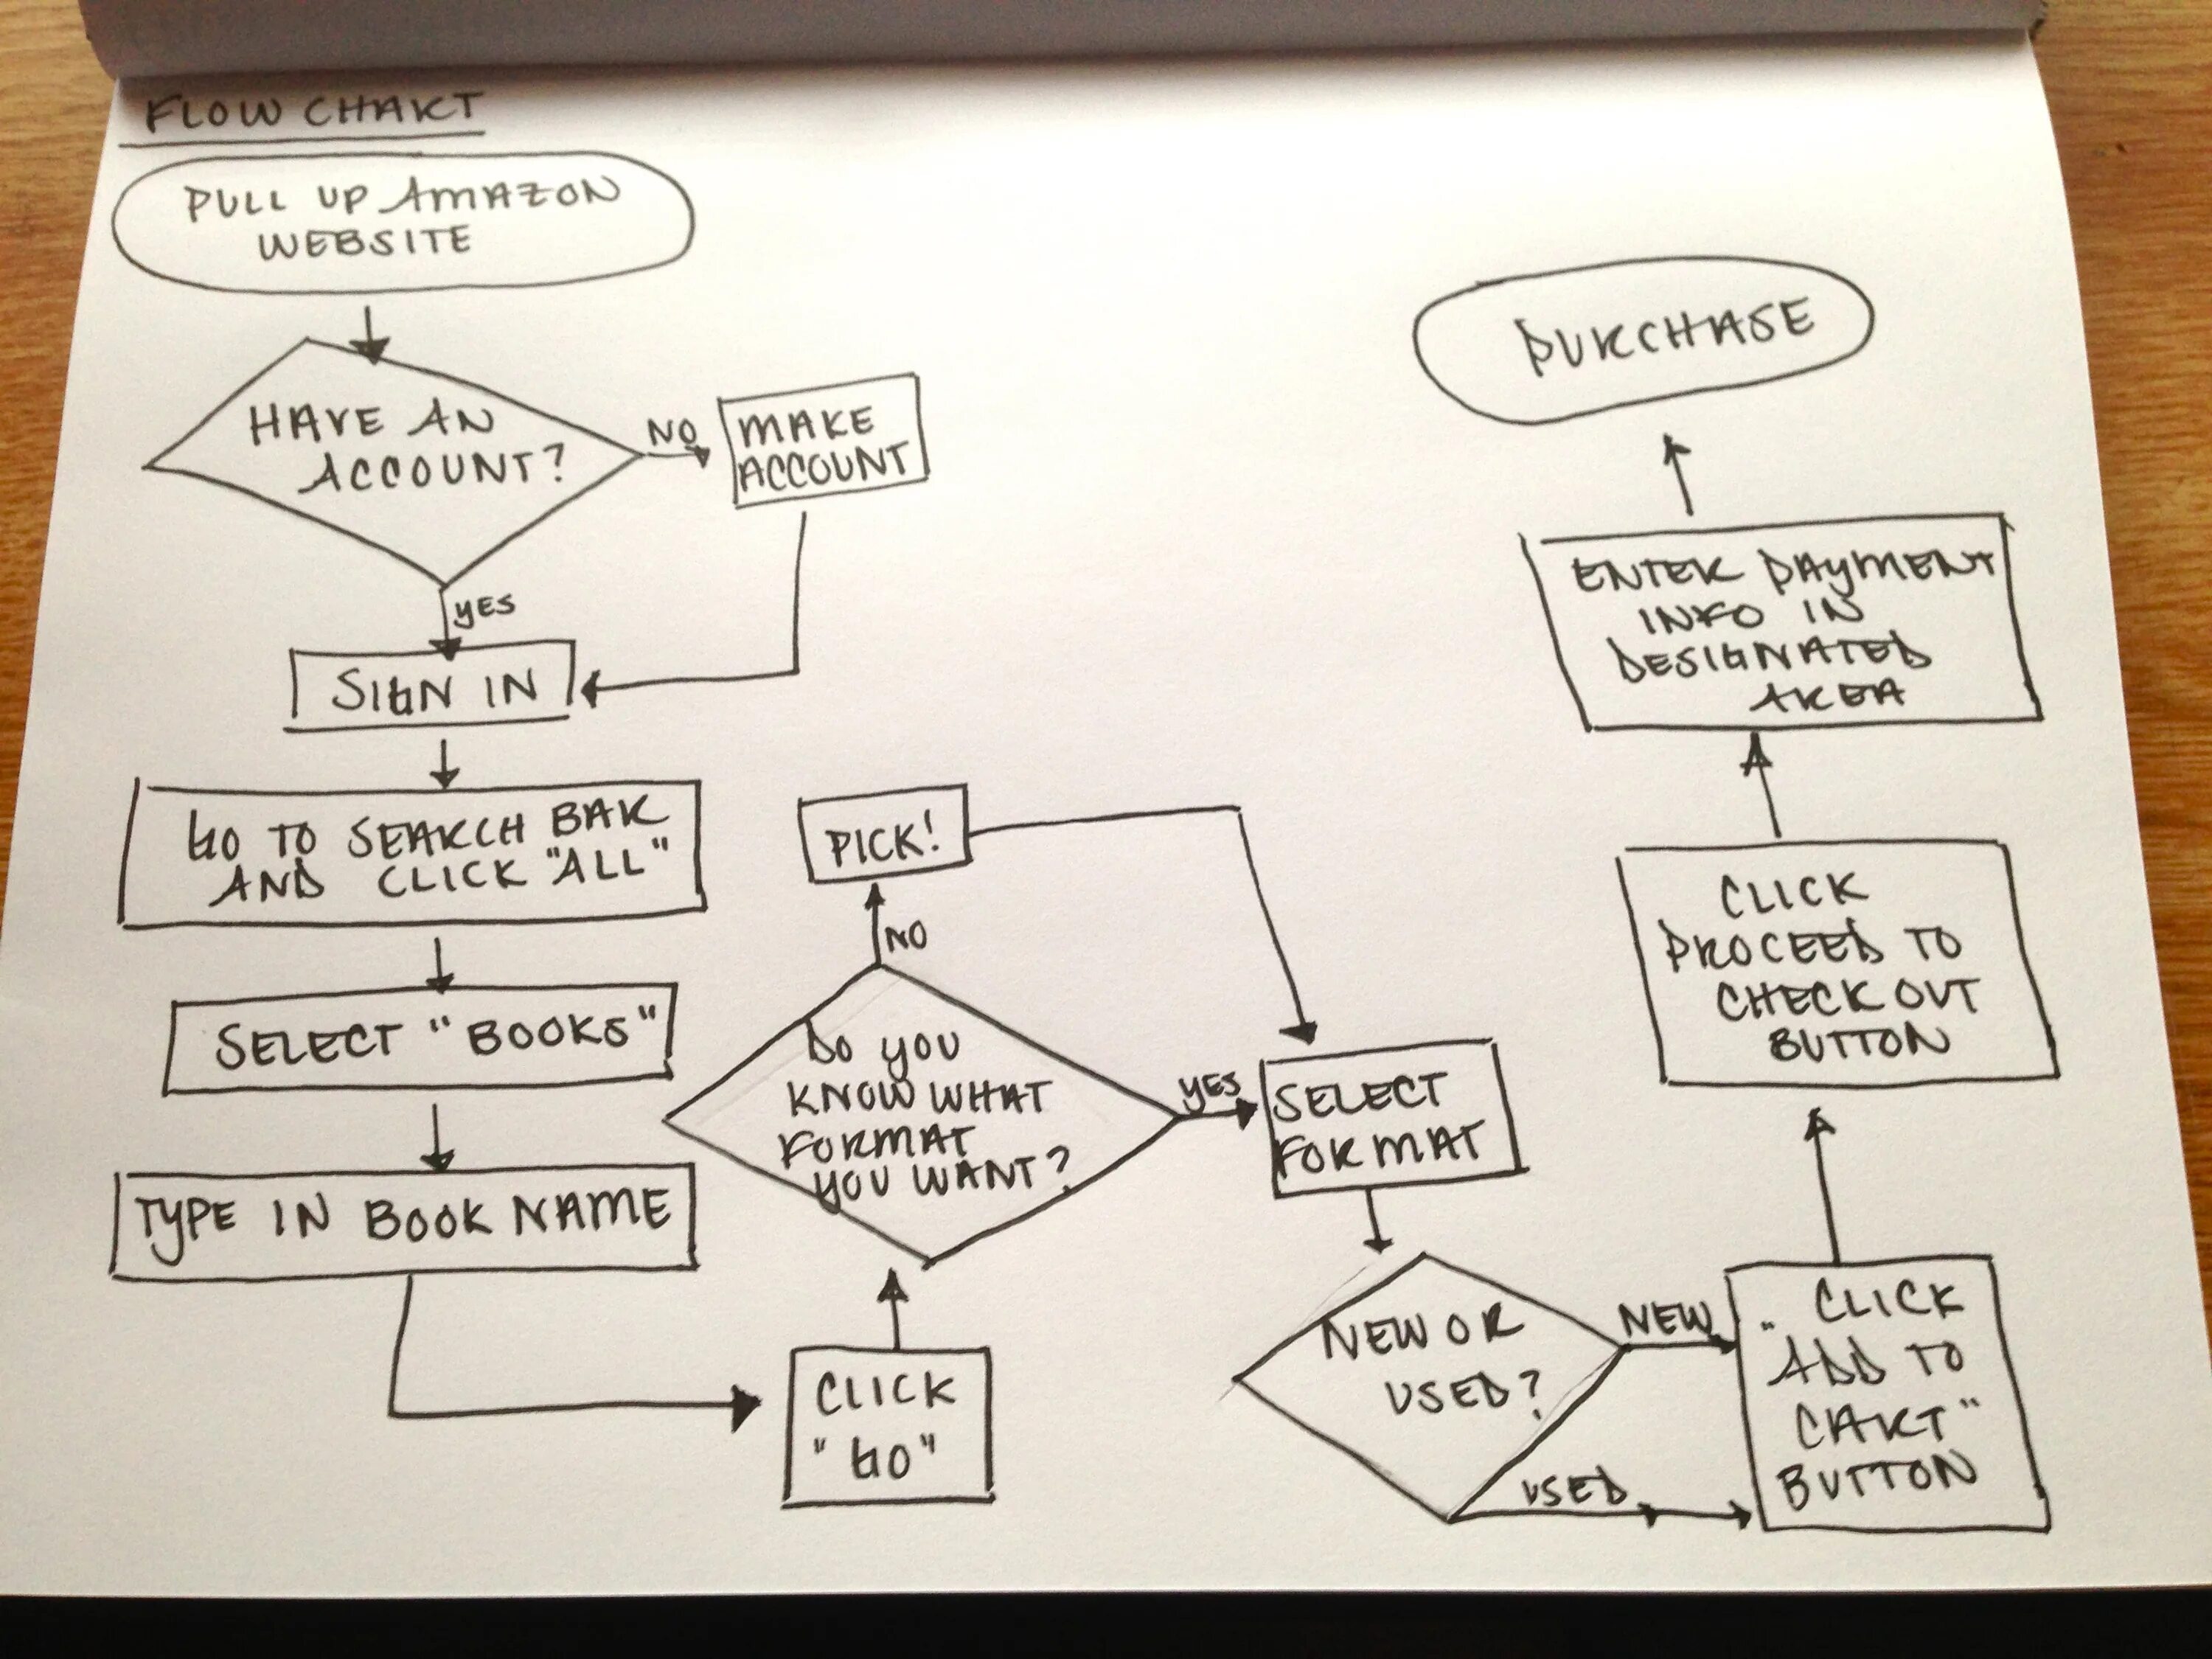 FLOW CHART
PULL UP AMAZON
WEBSITE
HAVE AN
ACCOUNT?
NO
MAKE
ACCOUNT
YES
SIGN IN
GO TO SEARCH BAR
AND CLICK "ALL"
SELECT "BOOKS"
TYPE IN BOOK NAME
CLICK
"GO"
DO YOU
KNOW WHAT
FORMAT
YOU WANT?
NO
PICK!
YES
SELECT
FORMAT
NEW OR
USED?
NEW
USED
" CLICK
ADD TO
CART"
BUTTON
CLICK
PROCEED TO
CHECK OUT
BUTTON
ENTER PAYMENT
INFO IN
DESIGNATED
AREA
PURCHASE